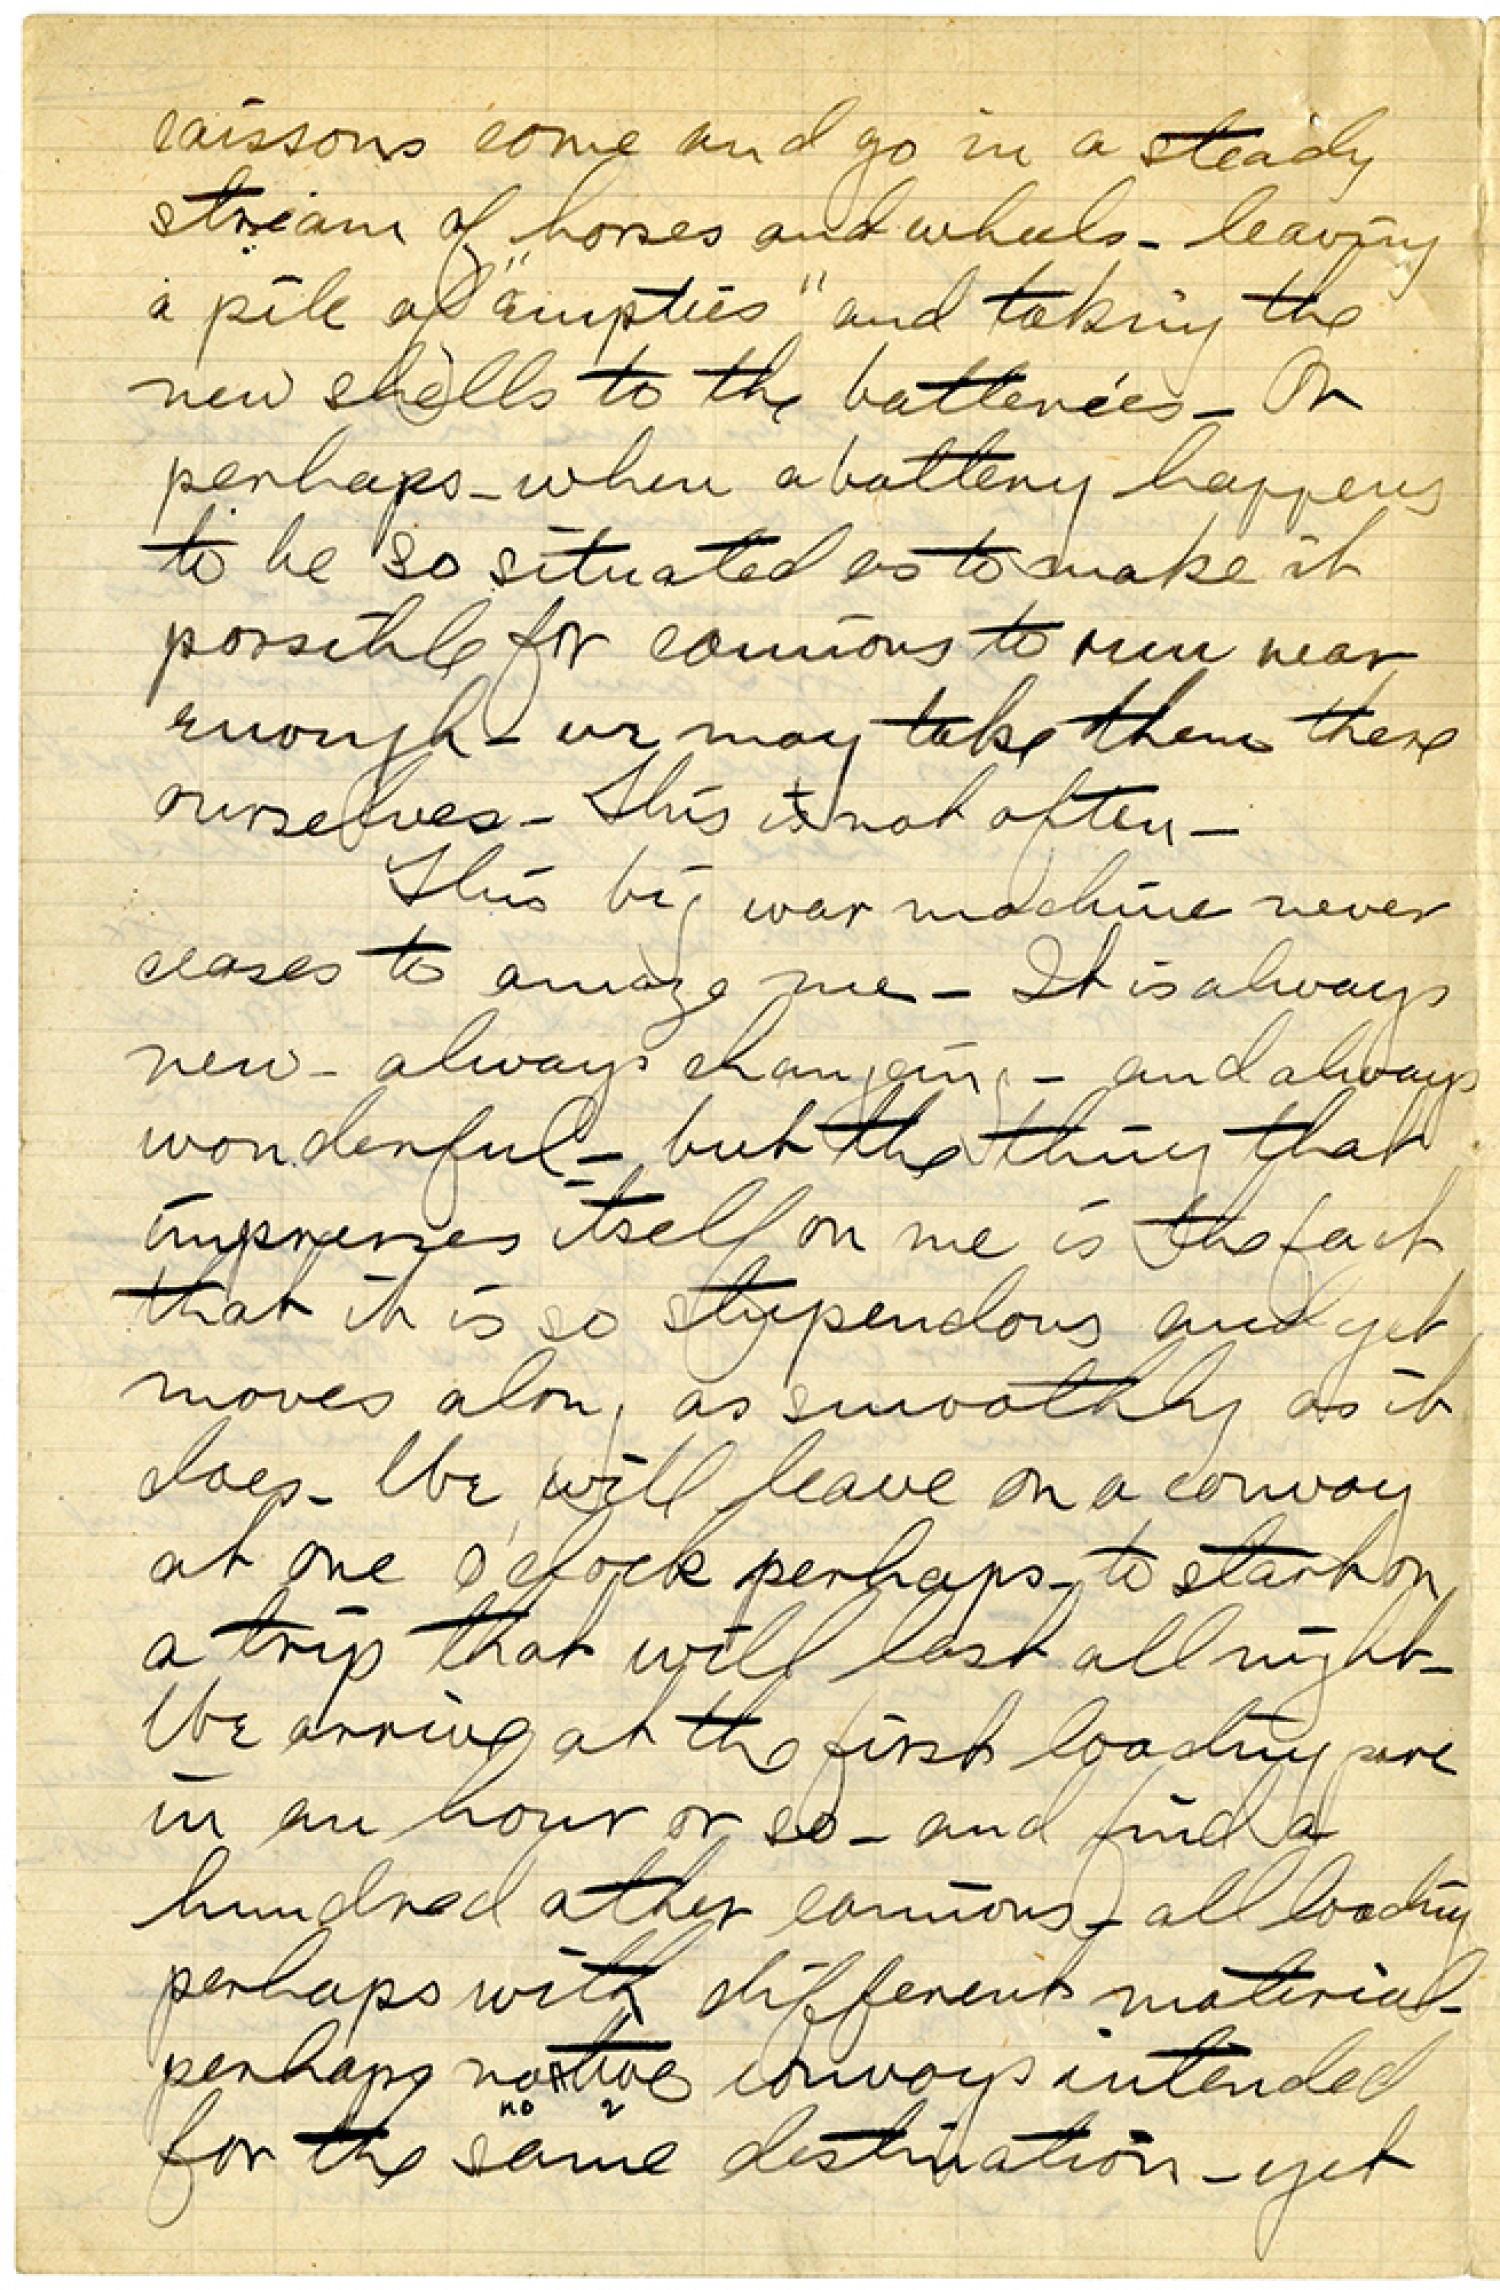 caissons come and go in a steady
stream of horses and wheels - leaving
a pile of "empties" and taking the
new shells to the batteries - Or
perhaps - when a battery happens
to be so situated as to make it
possible for camions to run near
enough - we may take them there
ourselves - This is not often -
This big war machine never
ceases to amaze me - It is always
new - always changing - and always
wonderful - but the thing that
impresses itself on me is the fact
that it is so stupendous and yet
moves along as smoothly as it
does - We will leave on a convoy
at one o'clock perhaps - to start on
a trip that will last all night -
We arrive at the first loading parc
in an hour or so - and find a
hundred other camions - all loading
perhaps with different material -
perhaps no two convoys intended
no 2
for the same destination - yet